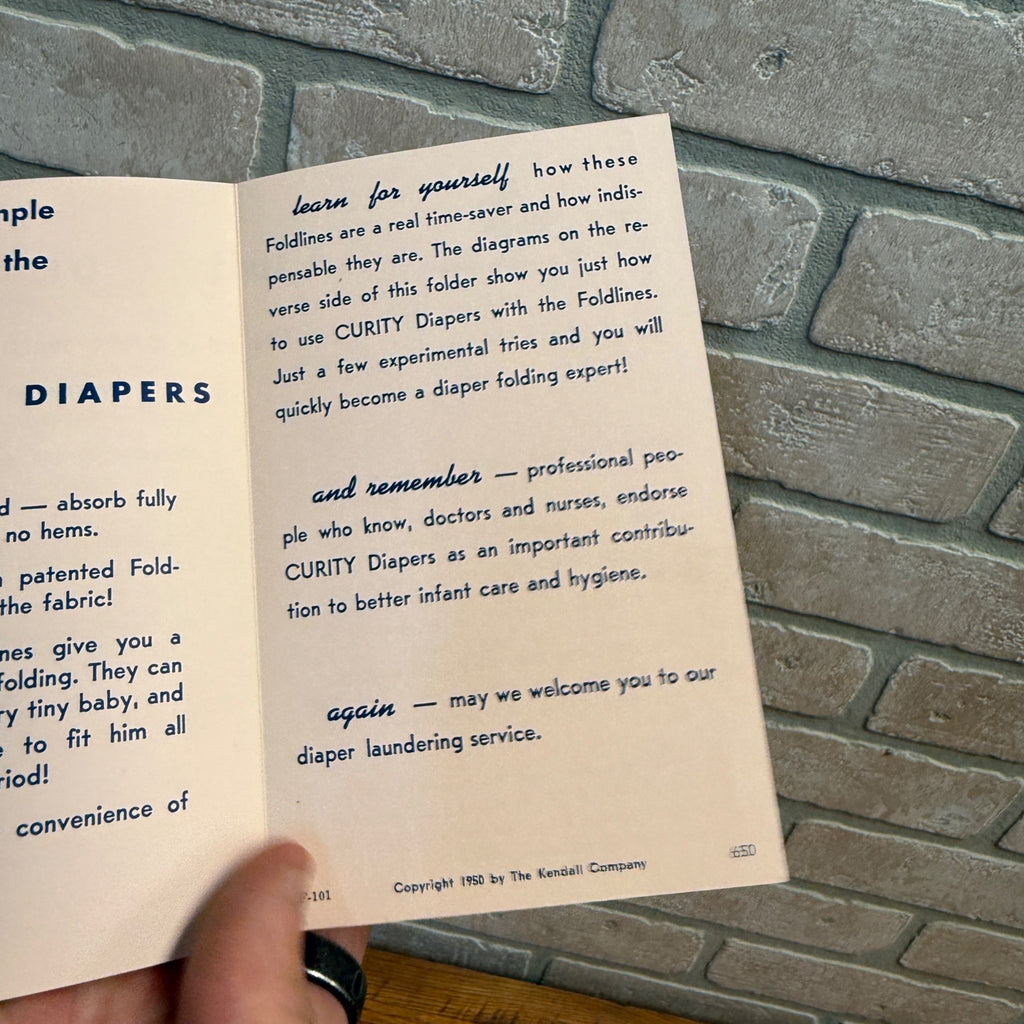 the
DIAPERS
— absorb fully
no hems.
patented Fold-
the fabric!
give you a
folding. They can
tiny baby, and
to fit him all
convenience of
learn for yourself how these
Foldlines are a real time-saver and how indis-
pensable they are. The diagrams on the re-
verse side of this folder show you just how
to use CURITY Diapers with the Foldlines.
Just a few experimental tries and you will
quickly become a diaper folding expert!
and remember — professional peo-
ple who know, doctors and nurses, endorse
CURITY Diapers as an important contribu-
tion to better infant care and hygiene.
again — may we welcome you to our
diaper laundering service.
-101
Copyright 1950 by The Kendall Company
650